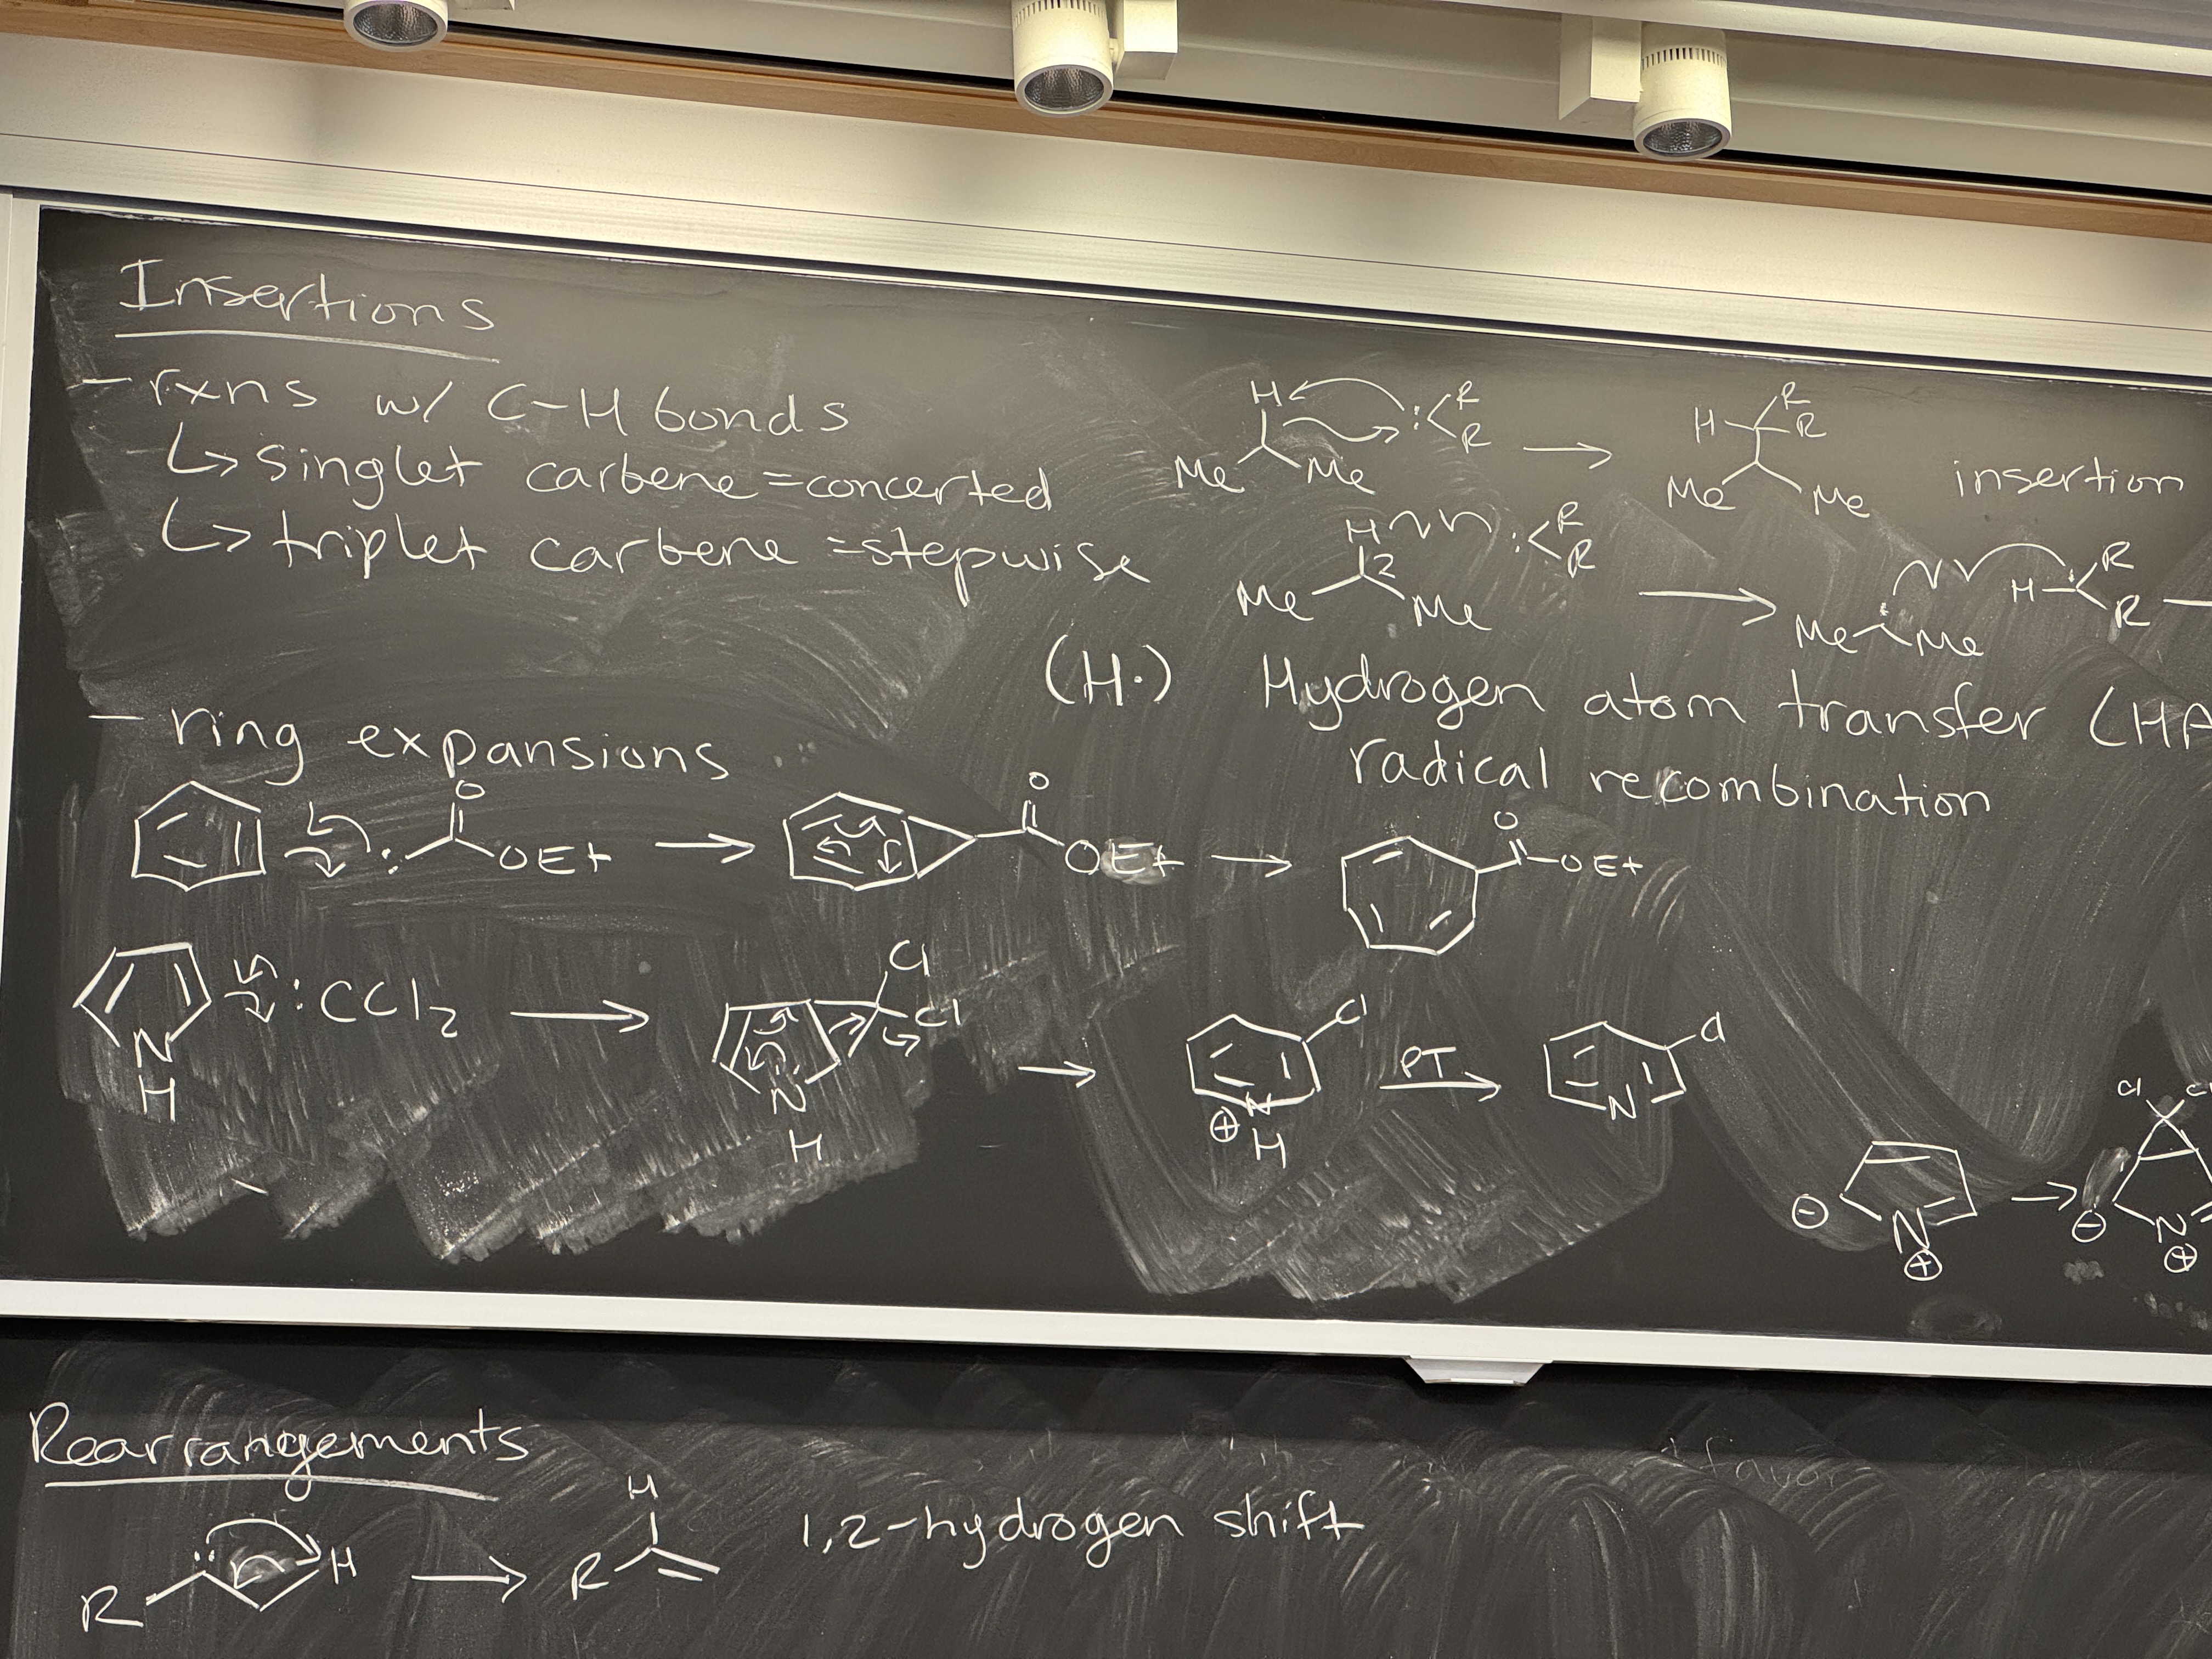 Insertions
- rxns w/ C-H bonds
↳ singlet carbene = concerted
↳ triplet carbene = stepwise
H : R R → H R R
Me Me Me Me insertion
H : R R
Me Me → Me Me H R R
(H·) Hydrogen atom transfer (HA
radical recombination
- ring expansions
: O OEt → O OEt → O OEt
N H :CCl2 → N H Cl Cl → N ⊕ H Cl PT → N Cl
⊖ N ⊕ → ⊖ N ⊕ Cl C
Rearrangements
R : H → R H 1,2-hydrogen shift